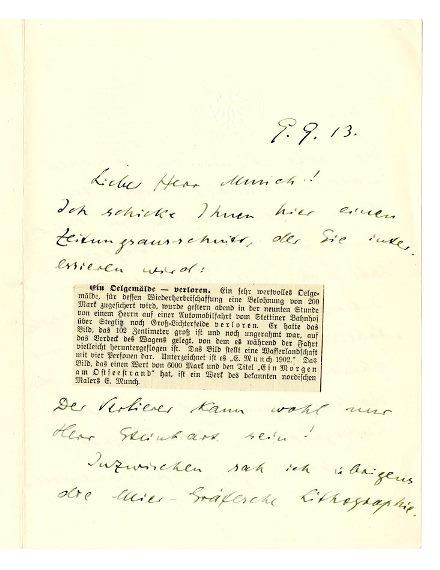 9. 9. 13.
Lieber Herr Munch!
Ich schicke Ihnen hier einen
Zeitungsausschnitt, der Sie inter-
essieren wird:
Ein Oelgemälde — verloren. Ein sehr wertvolles Oelge-
mälde, für dessen Wiederherbeischaffung eine Belohnung von 200
Mark zugesichert wird, wurde gestern abend in der neunten Stunde
von einem Herrn auf einer Automobilfahrt vom Stettiner Bahnhof
über Steglitz nach Groß-Lichterfelde verloren. Er hatte das
Bild, das 102 Zentimeter groß ist und noch ungerahmt war, auf
das Verdeck des Wagens gelegt, von dem es während der Fahrt
vielleicht heruntergeflogen ist. Das Bild stellt eine Wasserlandschaft
mit vier Personen dar. Unterzeichnet ist es „E. Munch 1902." Das
Bild, das einen Wert von 6000 Mark und den Titel „Ein Morgen
am Ostseestrand" hat, ist ein Werk des bekannten nordischen
Malers E. Munch.
Der Verlierer kann wohl nur
Herr Steinbart sein!
Inzwischen sah ich übrigens
die Meier-Gräfesche Lithographie.